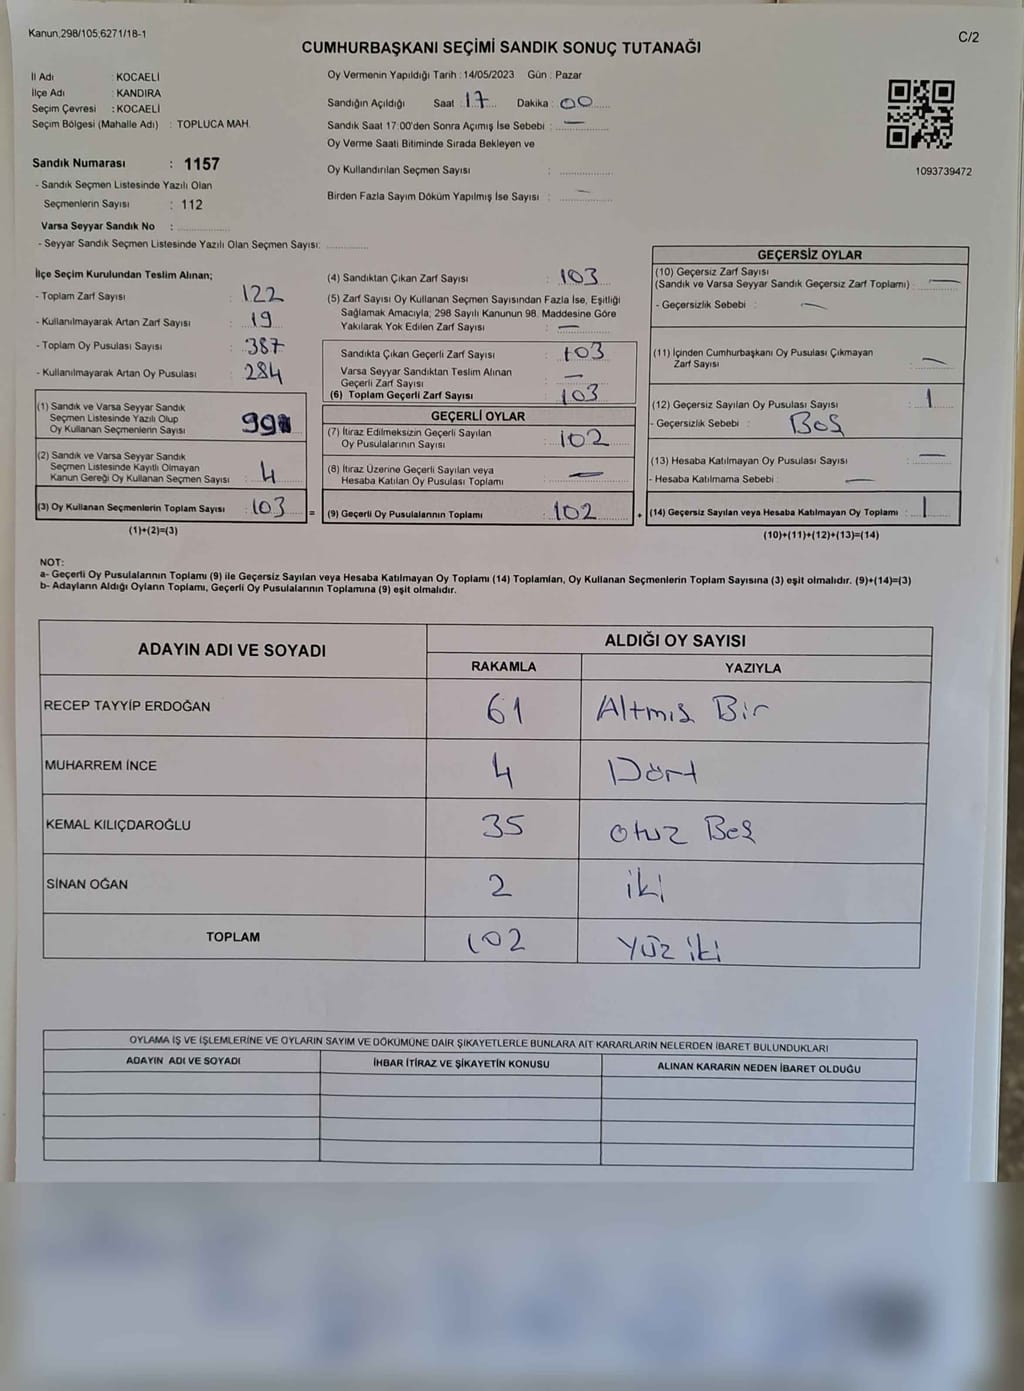 Kanun,298/105,6271/18-1
C/2
CUMHURBAŞKANI SEÇİMİ SANDIK SONUÇ TUTANAĞI
İl Adı : KOCAELİ
İlçe Adı : KANDIRA
Seçim Çevresi : KOCAELİ
Seçim Bölgesi (Mahalle Adı) : TOPLUCA MAH.
Sandık Numarası : 1157
- Sandık Seçmen Listesinde Yazılı Olan
Seçmenlerin Sayısı : 112
Varsa Seyyar Sandık No :
- Seyyar Sandık Seçmen Listesinde Yazılı Olan Seçmen Sayısı:
Oy Vermenin Yapıldığı Tarih : 14/05/2023 Gün : Pazar
Sandığın Açıldığı Saat : 17 Dakika : 00
Sandık Saat 17:00'den Sonra Açımış İse Sebebi : —
Oy Verme Saati Bitiminde Sırada Bekleyen ve
Oy Kullandırılan Seçmen Sayısı :
Birden Fazla Sayım Döküm Yapılmış İse Sayısı : —
1093739472
İlçe Seçim Kurulundan Teslim Alınan;
- Toplam Zarf Sayısı : 122
- Kullanılmayarak Artan Zarf Sayısı : 19
- Toplam Oy Pusulası Sayısı : 387
- Kullanılmayarak Artan Oy Pusulası : 284
(1) Sandık ve Varsa Seyyar Sandık
Seçmen Listesinde Yazılı Olup
Oy Kullanan Seçmenlerin Sayısı : 99
(2) Sandık ve Varsa Seyyar Sandık
Seçmen Listesinde Kayıtlı Olmayan
Kanun Gereği Oy Kullanan Seçmen Sayısı : 4
(3) Oy Kullanan Seçmenlerin Toplam Sayısı : 103 =
(1)+(2)=(3)
(4) Sandıktan Çıkan Zarf Sayısı : 103
(5) Zarf Sayısı Oy Kullanan Seçmen Sayısından Fazla İse, Eşitliği
Sağlamak Amacıyla; 298 Sayılı Kanunun 98. Maddesine Göre
Yakılarak Yok Edilen Zarf Sayısı : —
Sandıkta Çıkan Geçerli Zarf Sayısı : 103
Varsa Seyyar Sandıktan Teslim Alınan
Geçerli Zarf Sayısı : —
(6) Toplam Geçerli Zarf Sayısı : 103
GEÇERLİ OYLAR
(7) İtiraz Edilmeksizin Geçerli Sayılan
Oy Pusulalarının Sayısı : 102
(8) İtiraz Üzerine Geçerli Sayılan veya
Hesaba Katılan Oy Pusulası Toplamı : —
(9) Geçerli Oy Pusulalarının Toplamı : 102 +
GEÇERSİZ OYLAR
(10) Geçersiz Zarf Sayısı
(Sandık ve Varsa Seyyar Sandık Geçersiz Zarf Toplamı) : —
- Geçersizlik Sebebi : —
(11) İçinden Cumhurbaşkanı Oy Pusulası Çıkmayan
Zarf Sayısı : —
(12) Geçersiz Sayılan Oy Pusulası Sayısı : 1
- Geçersizlik Sebebi : Boş
(13) Hesaba Katılmayan Oy Pusulası Sayısı : —
- Hesaba Katılmama Sebebi : —
(14) Geçersiz Sayılan veya Hesaba Katılmayan Oy Toplamı : 1
(10)+(11)+(12)+(13)=(14)
NOT:
a- Geçerli Oy Pusulalarının Toplamı (9) ile Geçersiz Sayılan veya Hesaba Katılmayan Oy Toplamı (14) Toplamları, Oy Kullanan Seçmenlerin Toplam Sayısına (3) eşit olmalıdır. (9)+(14)=(3)
b- Adayların Aldığı Oyların Toplamı, Geçerli Oy Pusulalarının Toplamına (9) eşit olmalıdır.
ADAYIN ADI VE SOYADI
ALDIĞI OY SAYISI
RAKAMLA YAZIYLA
RECEP TAYYİP ERDOĞAN 61 Altmış Bir
MUHARREM İNCE 4 Dört
KEMAL KILIÇDAROĞLU 35 Otuz Beş
SİNAN OĞAN 2 iki
TOPLAM 102 Yüz iki
OYLAMA İŞ VE İŞLEMLERİNE VE OYLARIN SAYIM VE DÖKÜMÜNE DAİR ŞİKAYETLERLE BUNLARA AİT KARARLARIN NELERDEN İBARET BULUNDUKLARI
ADAYIN ADI VE SOYADI İHBAR İTİRAZ VE ŞİKAYETİN KONUSU ALINAN KARARIN NEDEN İBARET OLDUĞU